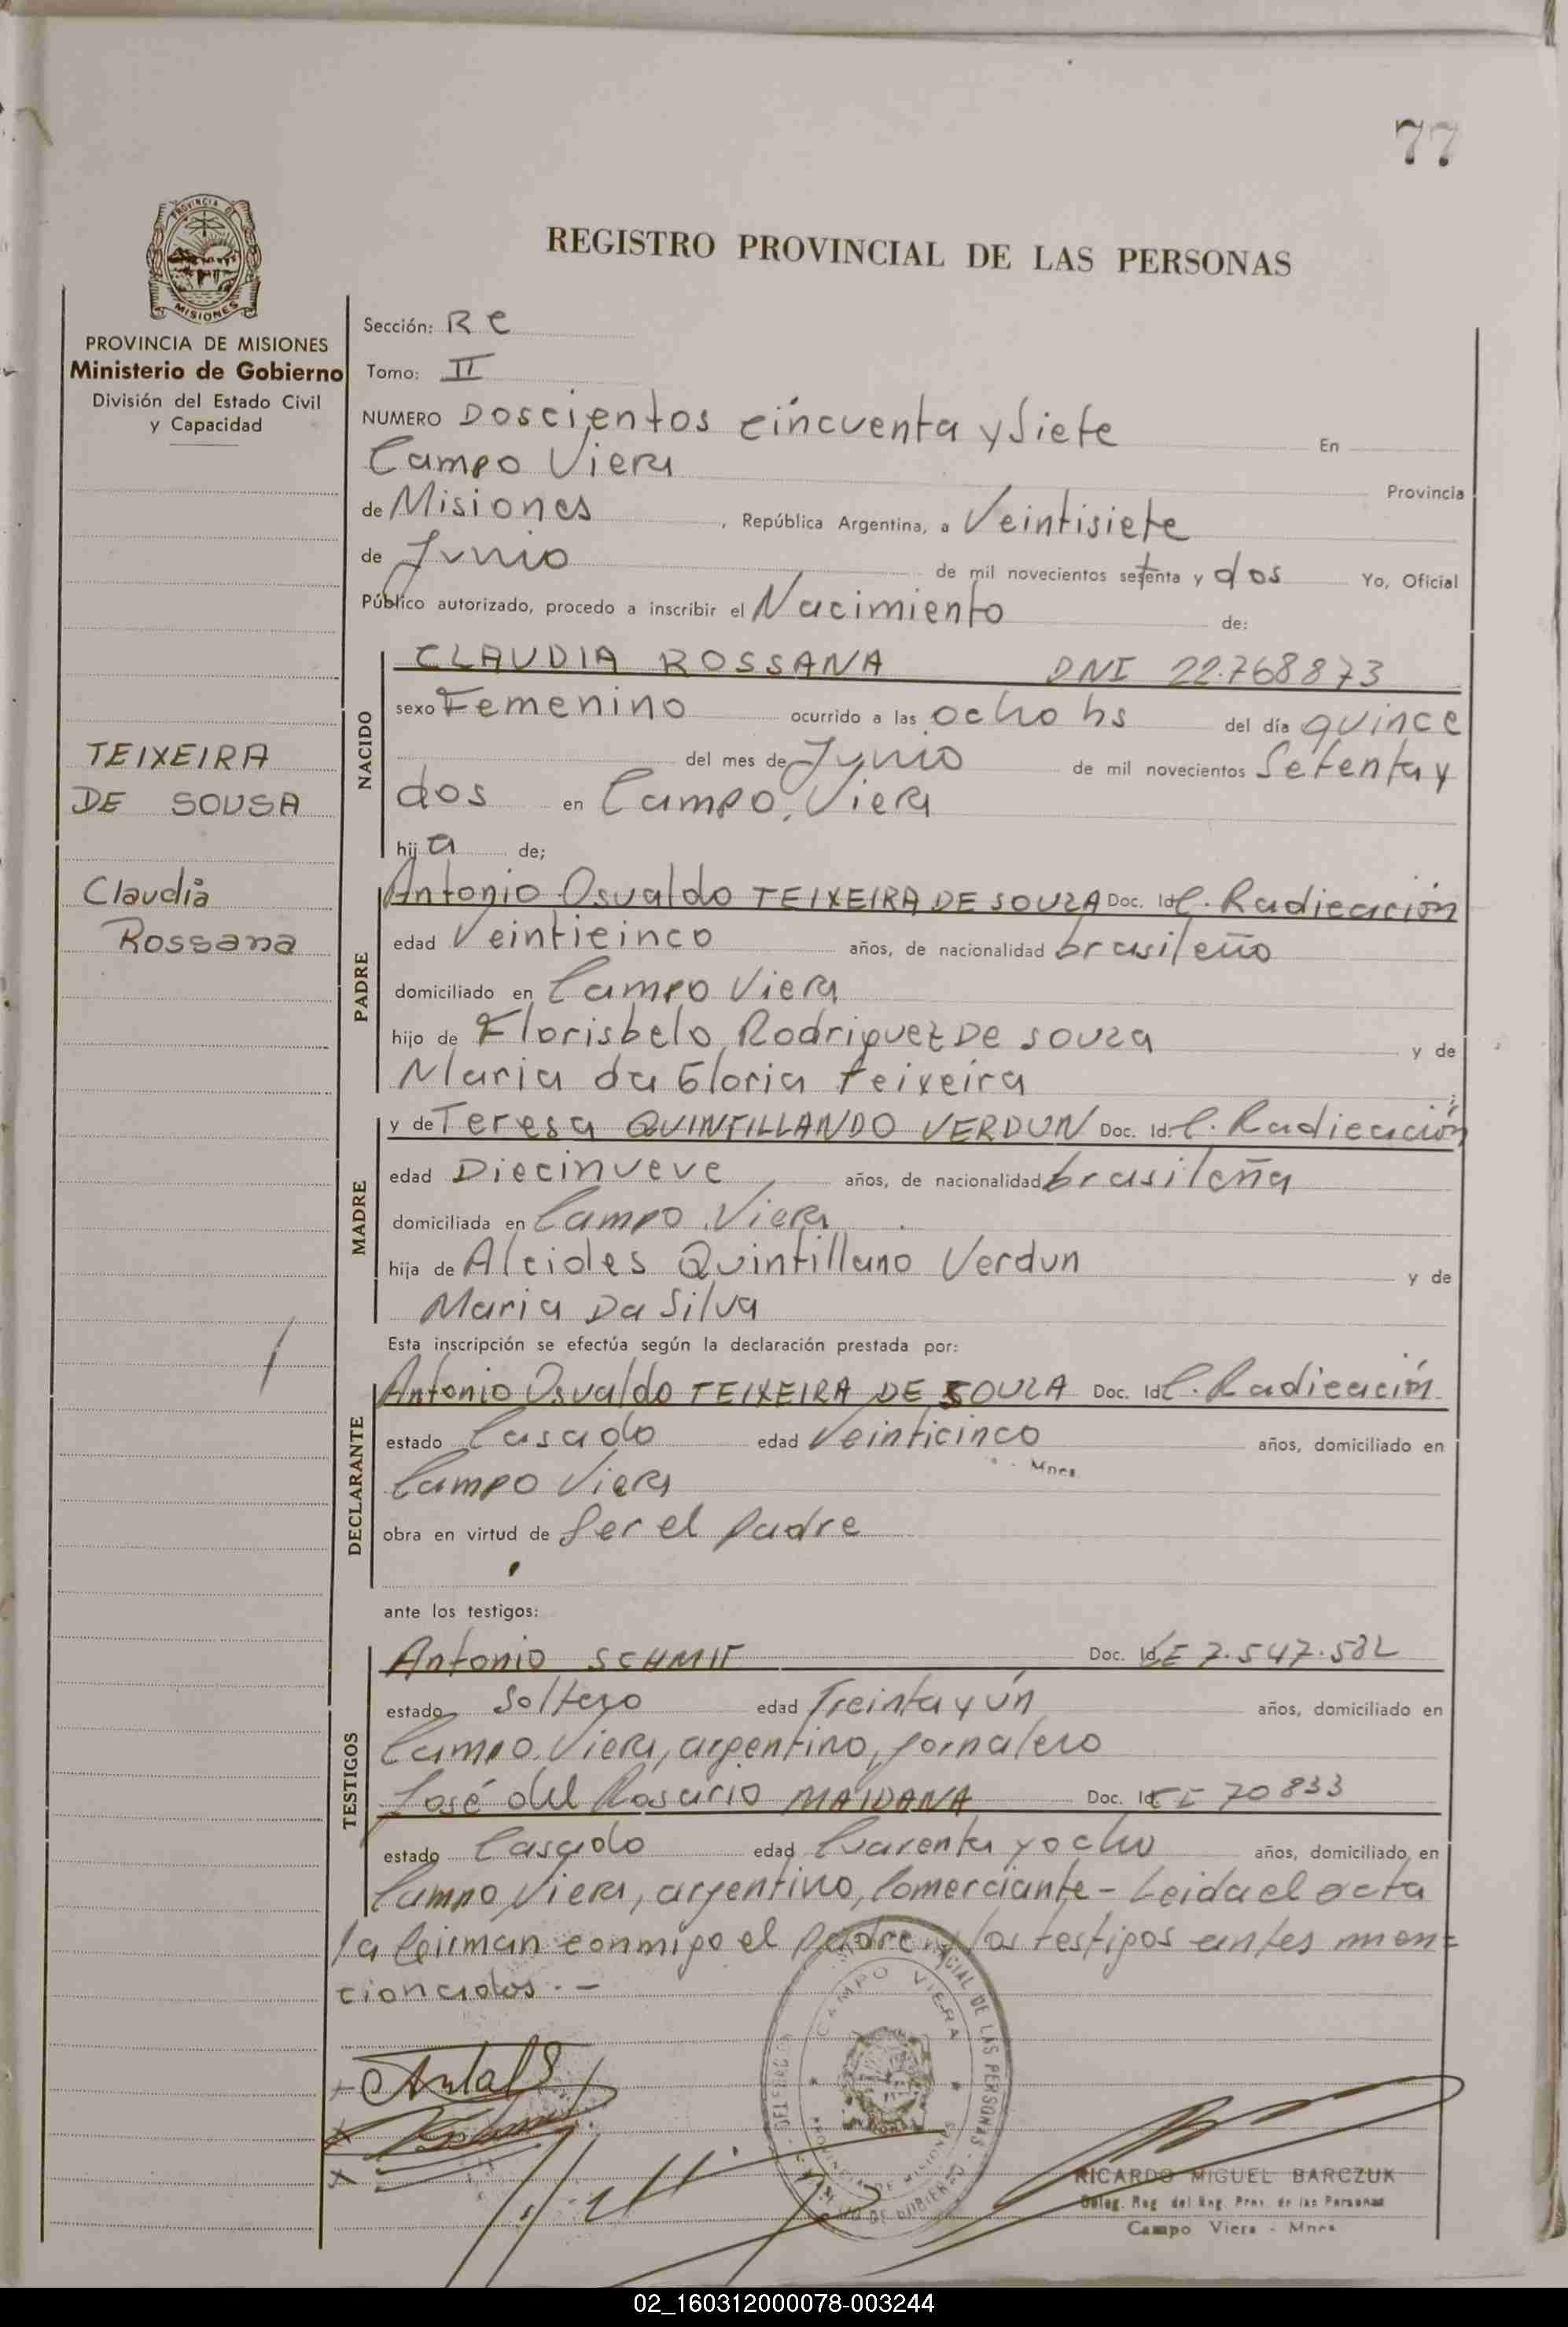 77
PROVINCIA DE
MISIONES
REGISTRO PROVINCIAL DE LAS PERSONAS
PROVINCIA DE MISIONES
Ministerio de Gobierno
División del Estado Civil
y Capacidad
TEIXEIRA
DE SOUSA
Claudia
Rossana
Sección: Re
Tomo: II
NUMERO Doscientos cincuenta y Siete En
Campo Viera Provincia
de Misiones, República Argentina, a Veintisiete
de Junio de mil novecientos setenta y dos Yo, Oficial
Público autorizado, procedo a inscribir el Nacimiento de:
NACIDO
CLAUDIA ROSSANA DNI 22.768873
sexo Femenino ocurrido a las ocho hs del día quince
del mes de Junio de mil novecientos Setenta y
dos en Campo Viera
hija de;
PADRE
Antonio Osvaldo TEIXEIRA DE SOUZA Doc. Id. C. Radicación
edad Veinticinco años, de nacionalidad brasileño
domiciliado en Campo Viera
hijo de Florisbelo Rodriguez De Souza y de
Maria da Gloria Teixeira
MADRE
y de Teresa QUINTILLANDO VERDUN Doc. Id. C. Radicación
edad Diecinueve años, de nacionalidad brasileña
domiciliada en Campo Viera
hija de Alcides Quintillano Verdun y de
Maria Da Silva
Esta inscripción se efectúa según la declaración prestada por:
DECLARANTE
Antonio Osvaldo TEIXEIRA DE SOUZA Doc. Id. C. Radicación
estado Casado edad Veinticinco años, domiciliado en
Mnes.
Campo Viera
obra en virtud de Ser el Padre
ante los testigos:
TESTIGOS
Antonio SCHMIT Doc. Id. LE 7.547.582
estado Soltero edad Treinta y ún años, domiciliado en
Campo Viera, argentino, jornalero
José del Rosario MAIDANA Doc. Id. CI 70833
estado Casado edad Cuarenta y ocho años, domiciliado en
Campo Viera, argentino, Comerciante - Leida el acta
la firman conmigo el Padre y los testigos antes men=
cionados. -
CAMPO VIERA
PROVINCIA DE MISIONES
RICARDO MIGUEL BARCZUK
Deleg. Reg. del Reg. Prov. de las Personas
Campo Viera - Mnes.
02_160312000078-003244